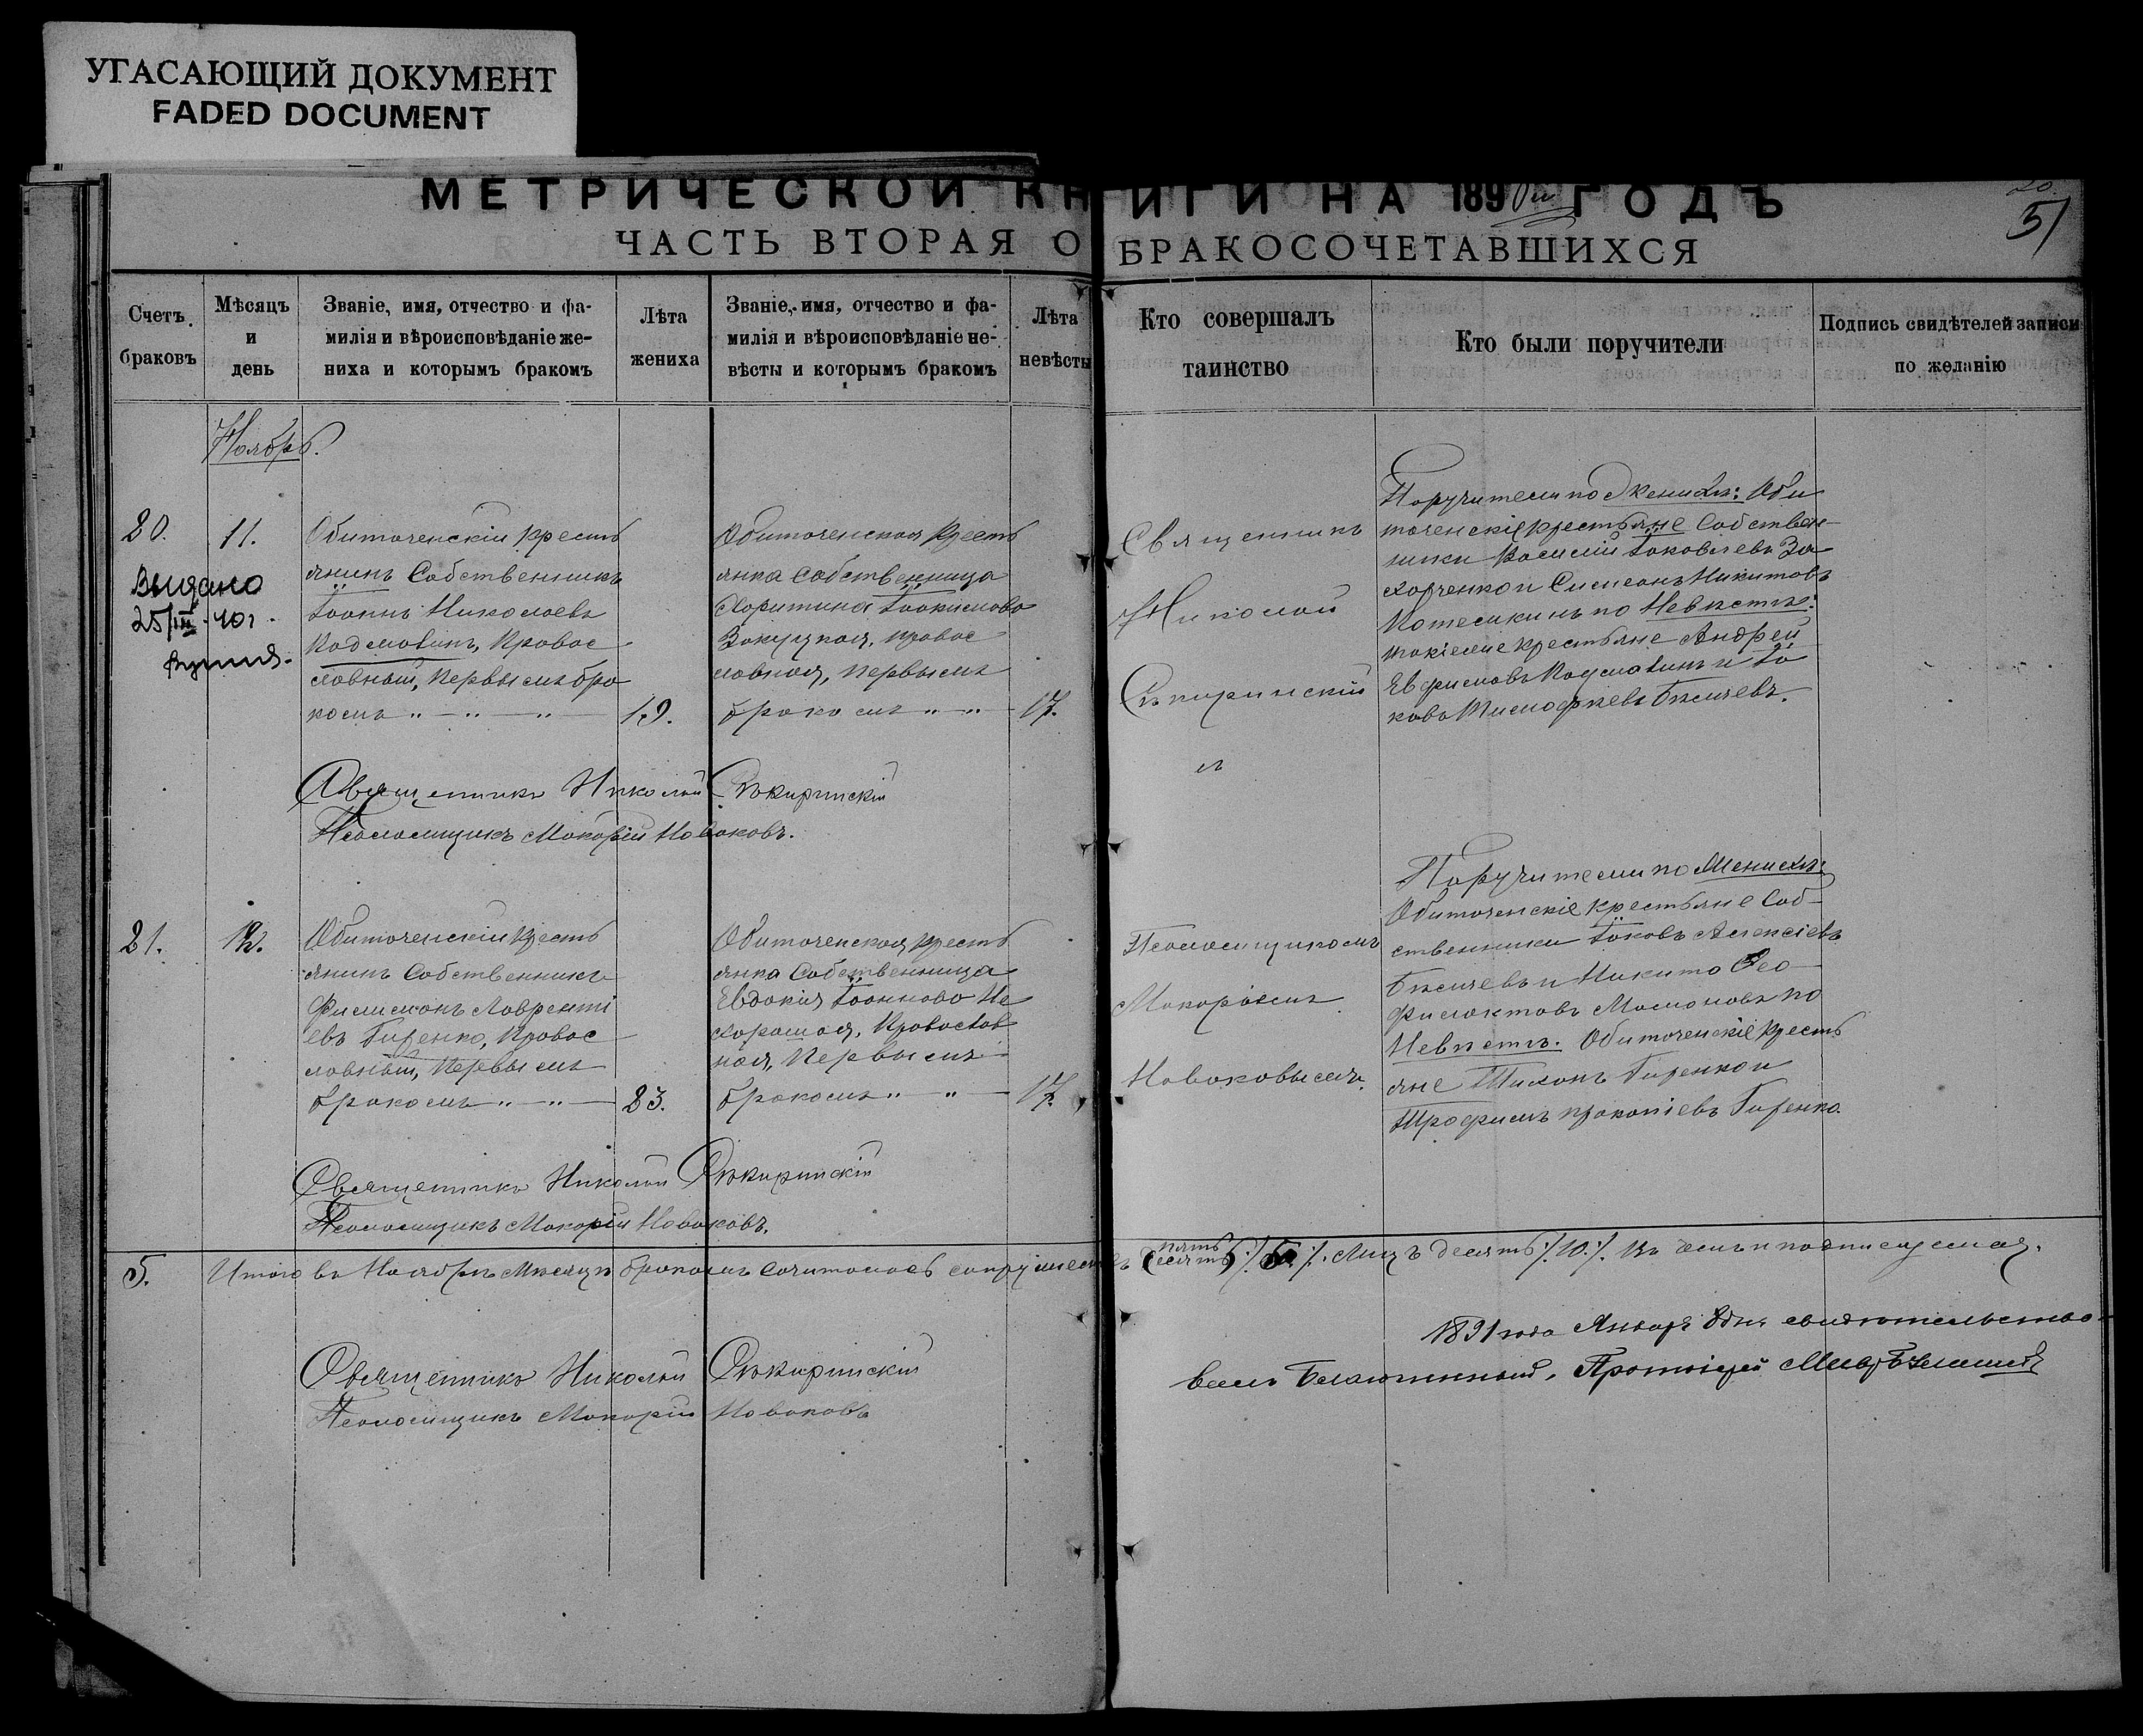 УГАСАЮЩИЙ ДОКУМЕНТ
FADED DOCUMENT
МЕТРИЧЕСКОЙ КНИГИ НА 1890й ГОДЪ
51
ЧАСТЬ ВТОРАЯ О БРАКОСОЧЕТАВШИХСЯ
Счетъ браковъ
Мѣсяцъ и день
Званіе, имя, отчество и фа-
милія и вѣроисповѣданіе же-
ниха и которымъ бракомъ
Лѣта жениха
Званіе, имя, отчество и фа-
милія и вѣроисповѣданіе не-
вѣсты и которымъ бракомъ
Лѣта невѣсты
Кто совершалъ
таинство
Кто были поручители
Подпись свидѣтелей записи
по желанію
Ноябрь.
20.
11.
Выдано
25/III-40г.
Обиточенскій крестъ
янинъ Собственникъ
Іоаннъ Николаевъ
Кадматинъ, Правос
лавный, Первымъ бра
комъ
19.
Обиточенская Крестъ
янка Собственница
Харитина Іоакимова
Закуцкая, Правос
лавная, Первымъ
бракомъ
17.
Священникъ
Николай
Сѣкиринскій
и
Поручители по Женихѣ: Оби
точенскіе крестьяне Собствен-
ники Василій Іаковлевъ За
харченко и Симеонъ Никитовъ
Котешкинъ по Невѣстѣ:
такіеже крестьяне Андрей
Ефимовъ Кадматинъ и Іа
ковъ Тимофѣевъ Бѣличевъ.
Священникъ Николай Сѣкиринскій
Псаломщикъ Макарій Новаковъ.
21.
12.
Обиточенскій Крестъ
янинъ Собственникъ
Филимонъ Лавренті
евъ Гиренко, Правос
лавный, Первымъ
бракомъ
23.
Обиточенская Крестъ
янка Собственница
Евдокія Іоаннова Не
хорошая, Православ
ная, Первымъ
бракомъ
17.
Псаломщикомъ
Макаріемъ
Новаковымъ.
Поручители по Женихѣ:
Обиточенскіе Крестьяне Соб-
ственники Іаковъ Алексіевъ
Бѣличевъ и Никита Фео
филактовъ Мамоновъ по
Невѣстѣ. Обиточенскіе Кресть
яне Тихонъ Гиренко и
Трофимъ Прокопіевъ Гиренко.
Священникъ Николай Сѣкиринскій
Псаломщикъ Макарій Новаковъ.
5.
Итого въ Ноябрѣ Мѣсяцѣ бракомъ сочиталось супружествъ пять 5 Лицъ десять 10 Въ чемъ и подписуемся.
Священникъ Николай Сѣкиринскій
Псаломщикъ Макарій Новаковъ
1891 года Января 8 дня свидѣтельство-
валъ Благочинный, Протоіерей